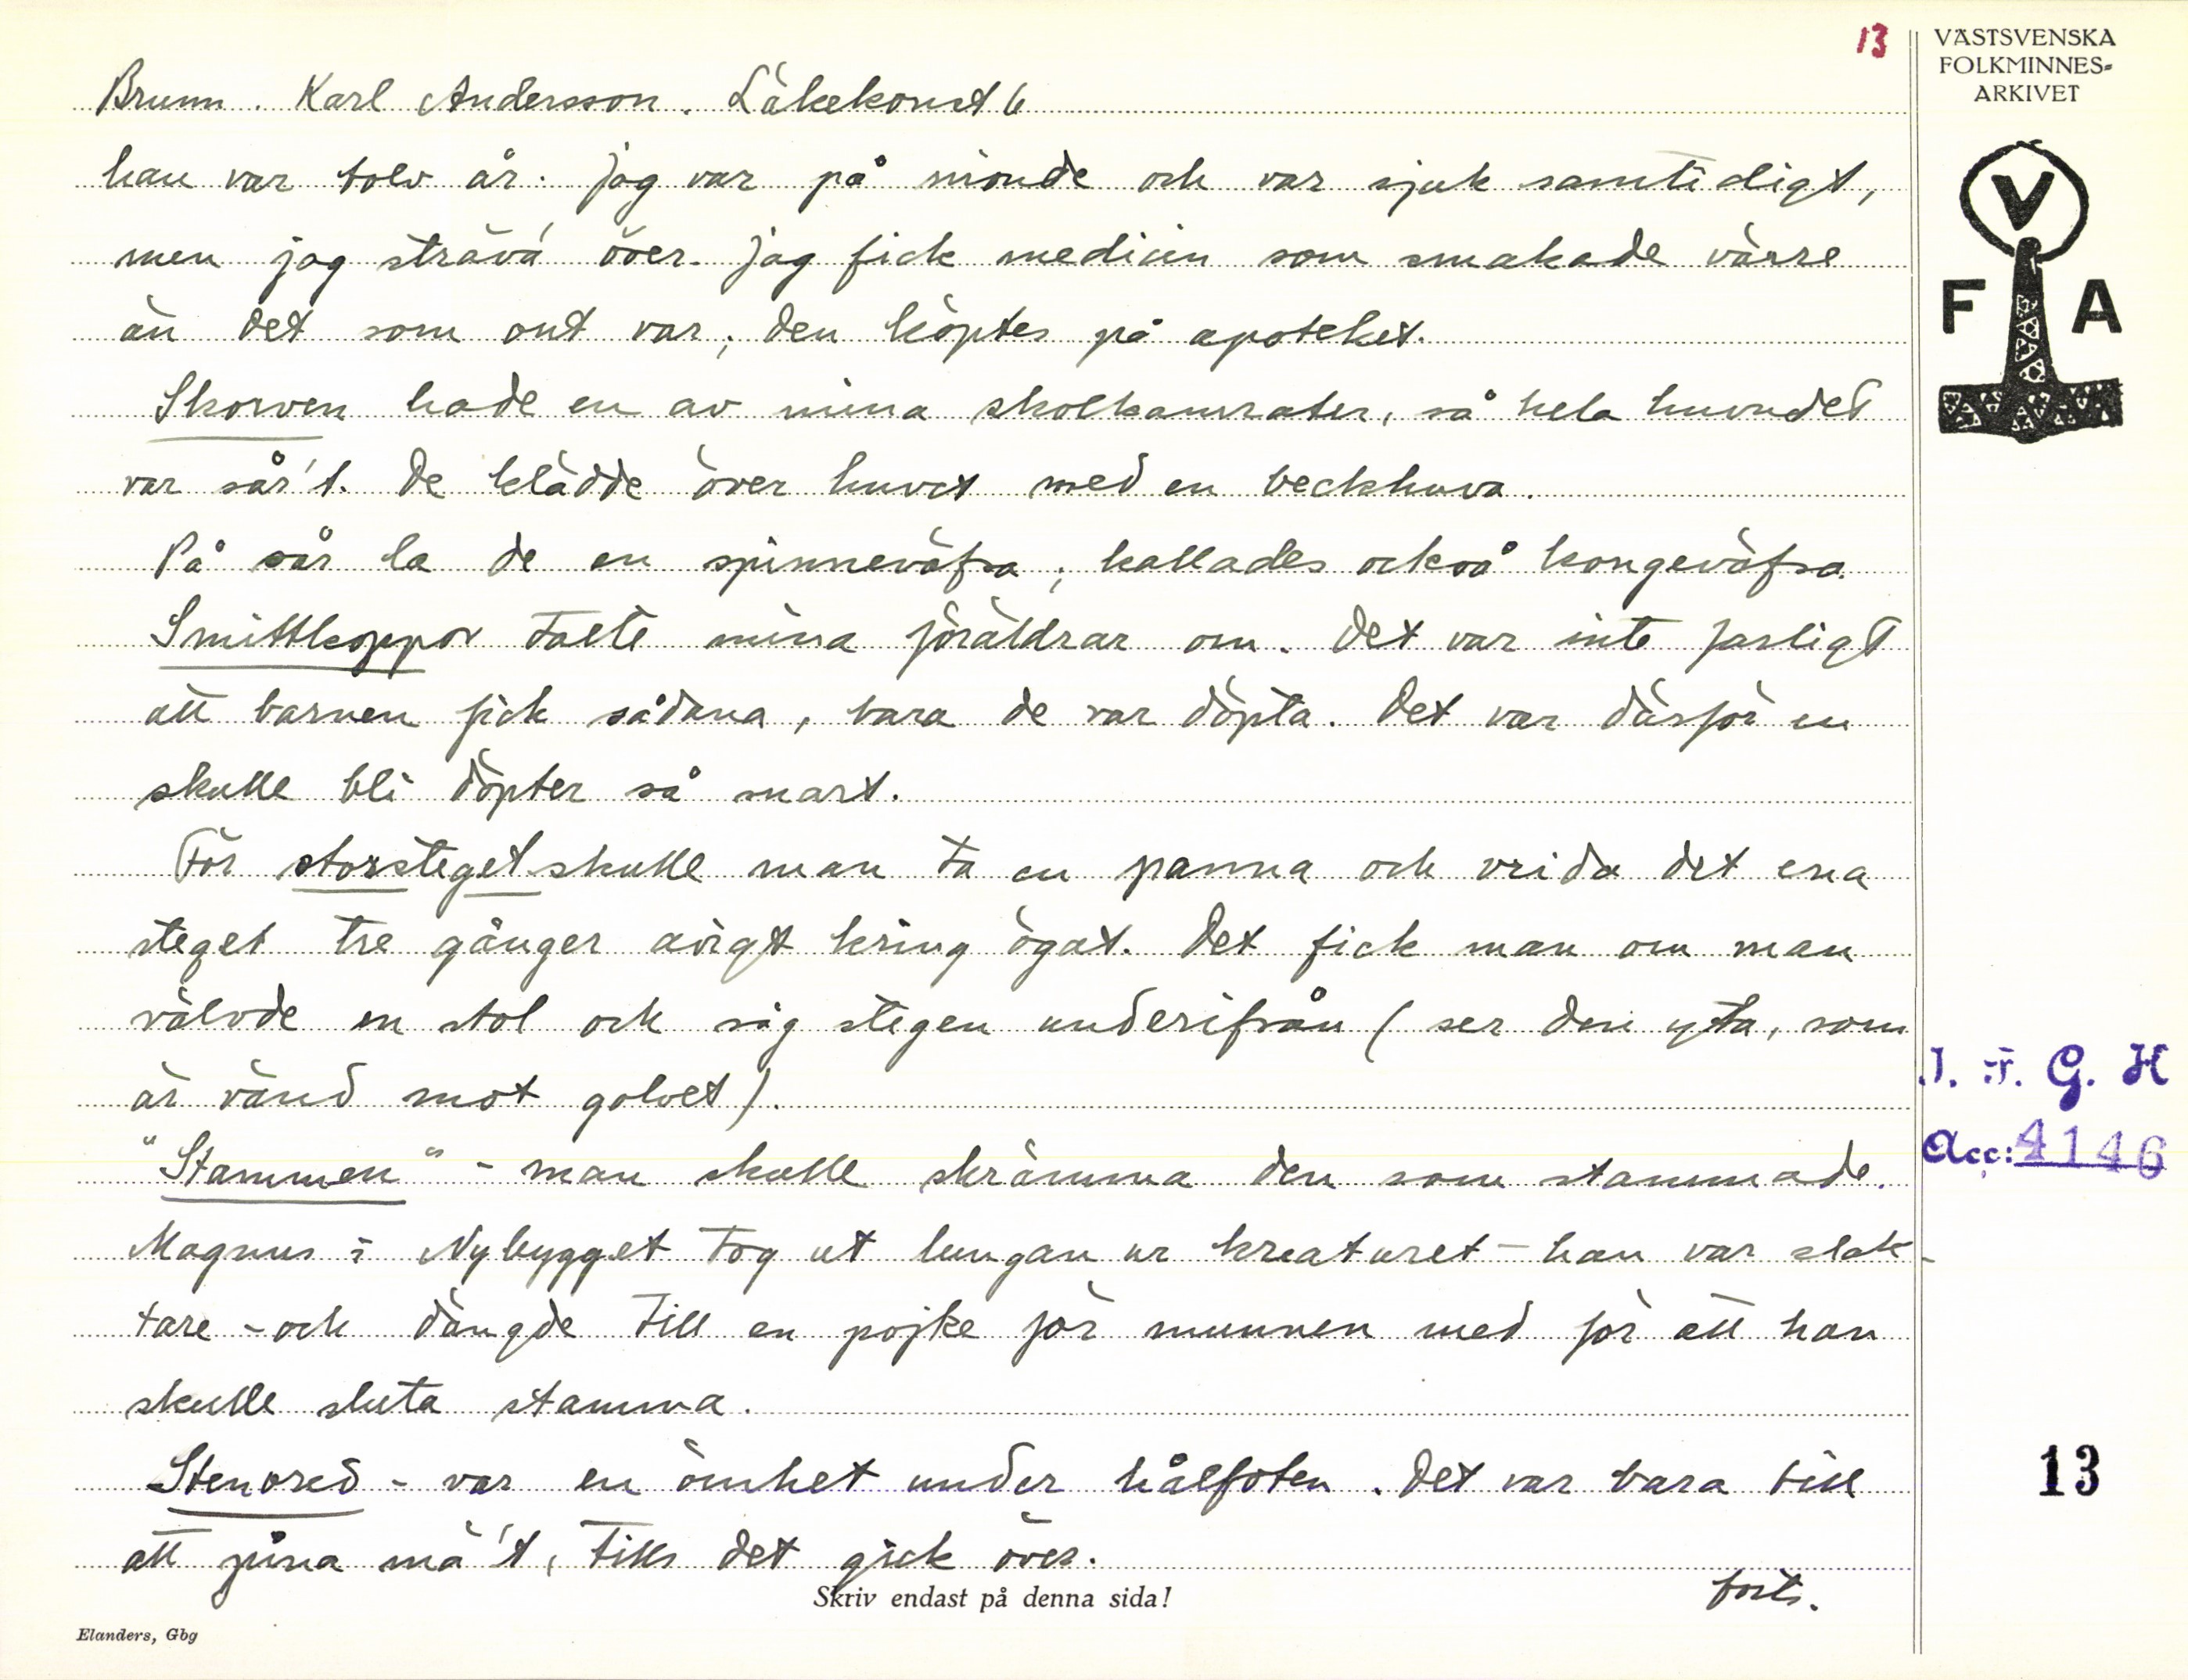 13
VÄSTSVENSKA
FOLKMINNES-
ARKIVET
V
F A
Brunn. Karl Andersson. Läkekonst 6
han var tolv år. Jag var på nionde och var sjuk samtidigt,
men jag sträva' över. Jag fick medicin som smakade värre
än det som ont var; den köptes på apoteket.
Skorven hade en av mina skolkamrater, så hela huvudet
var sår't. De klädde över huvet med en beckhuva.
På sår la de en spinneväfsa; kallades också kongeväfsa.
Smittkoppor talte mina föräldrar om. Det var inte farligt
att barnen fick sådana, bara de var döpta. Det var därför en
skulle bli döpter så snart.
För storsteget skulle man ta en panna och vrida det ena
steget tre gånger avigt kring ögat. Det fick man om man
välvde en stol och såg stegen underifrån (ser den yta, som
är vänd mot golvet).
"Stammen" - man skulle skrämma den som stammade.
Magnus i Nybygget tog ut lungan ur kreaturet - han var slak-
tare - och dängde till en pojke för munnen med för att han
skulle sluta stamma.
Stenored - var en ömhet under hålfoten. Det var bara till
att pina mä't, tills det gick över.
forts.
J. F. G. H
Acc: 4146
13
Skriv endast på denna sida!
Elanders, Gbg